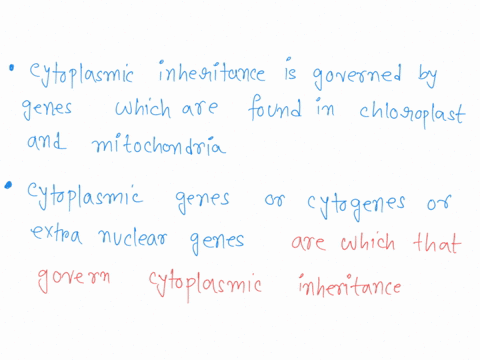 • Cytoplasmic inheritance is governed by
genes which are found in chloroplast
and mitochondria
• Cytoplasmic genes or cytogenes or
extra nuclear genes are which that
govern cytoplasmic inheritance